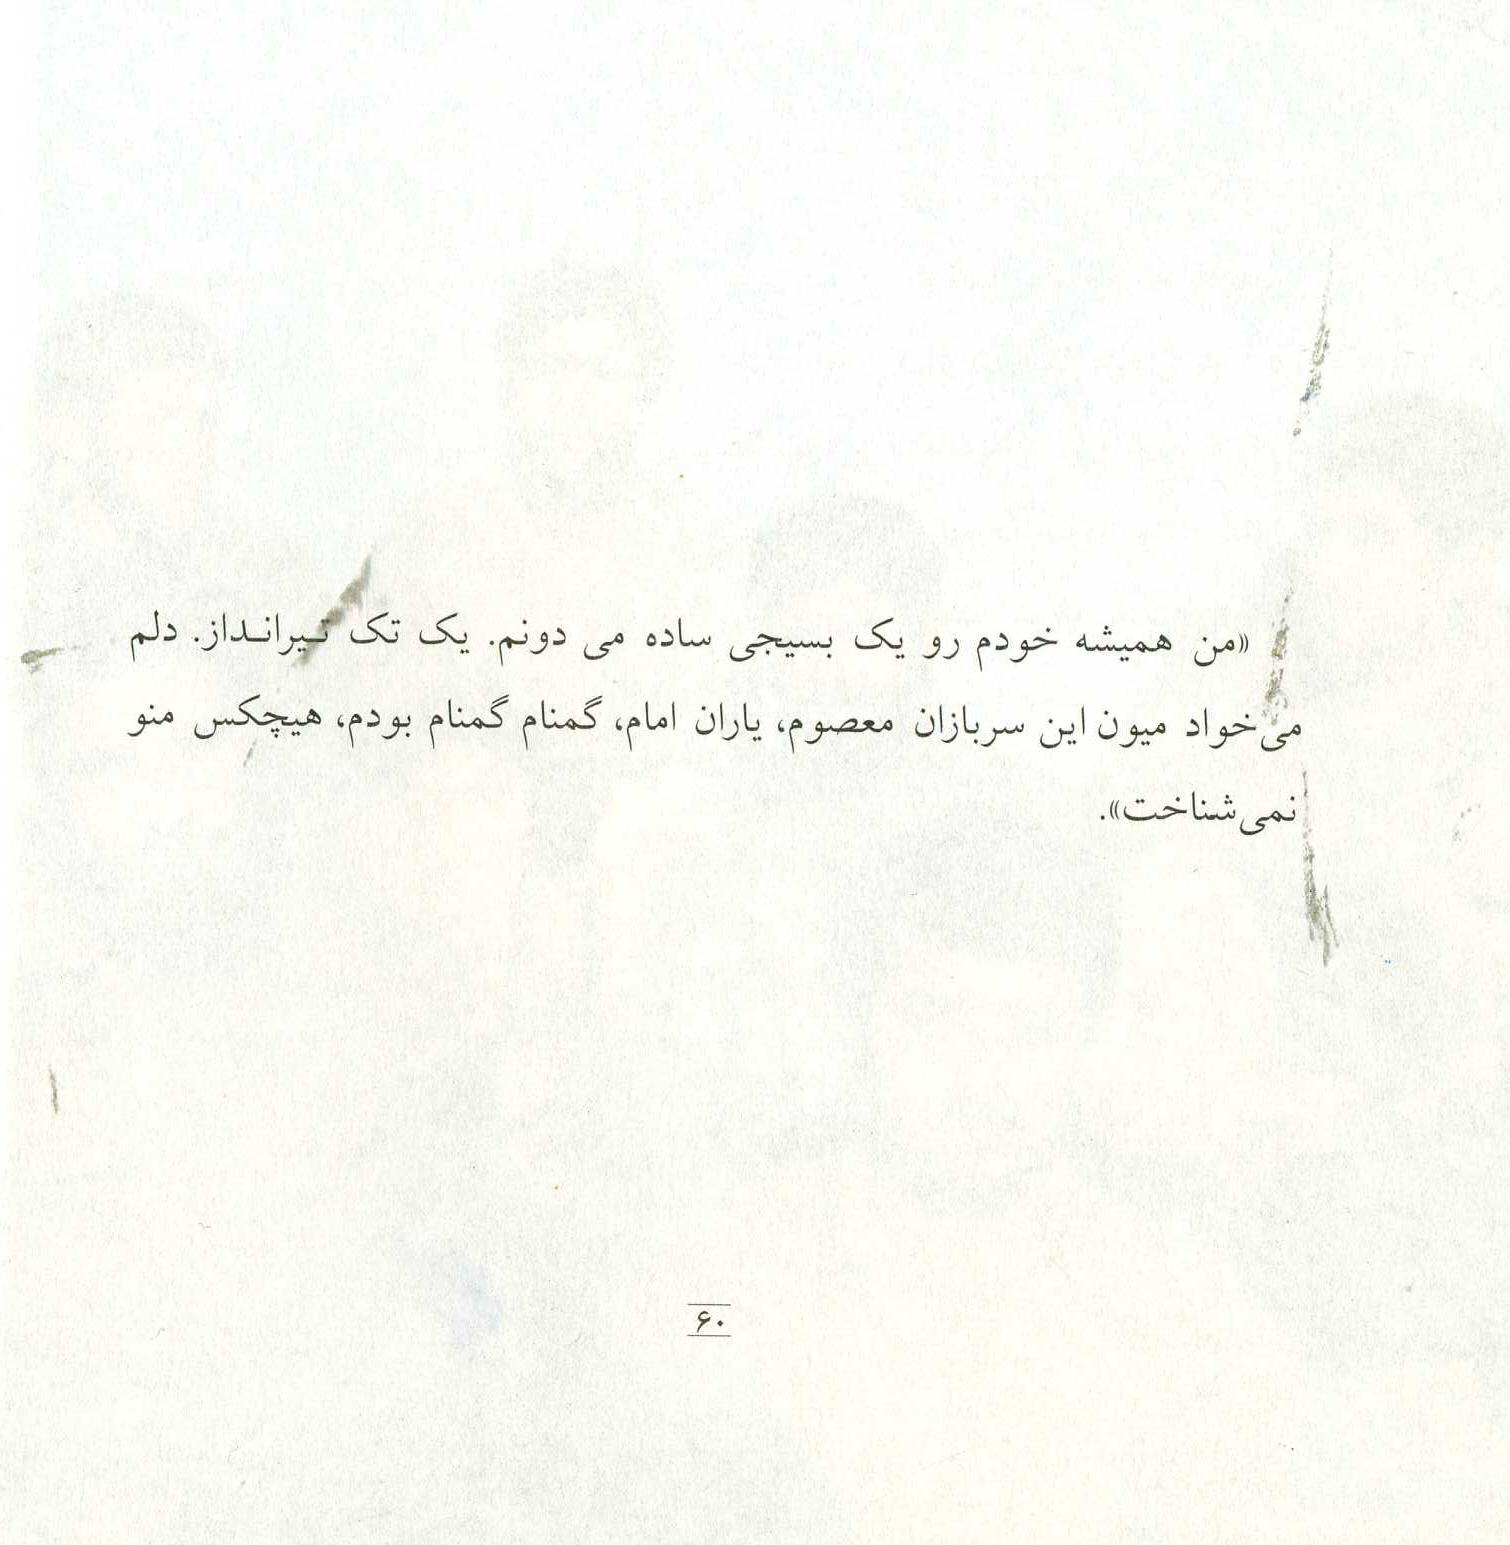 «من همیشه خودم رو یک بسیجی ساده می دونم. یک تک تیرانداز. دلم
می‌خواد میون این سربازان معصوم، یاران امام، گمنام گمنام بودم، هیچکس منو
نمی‌شناخت».
۶۰